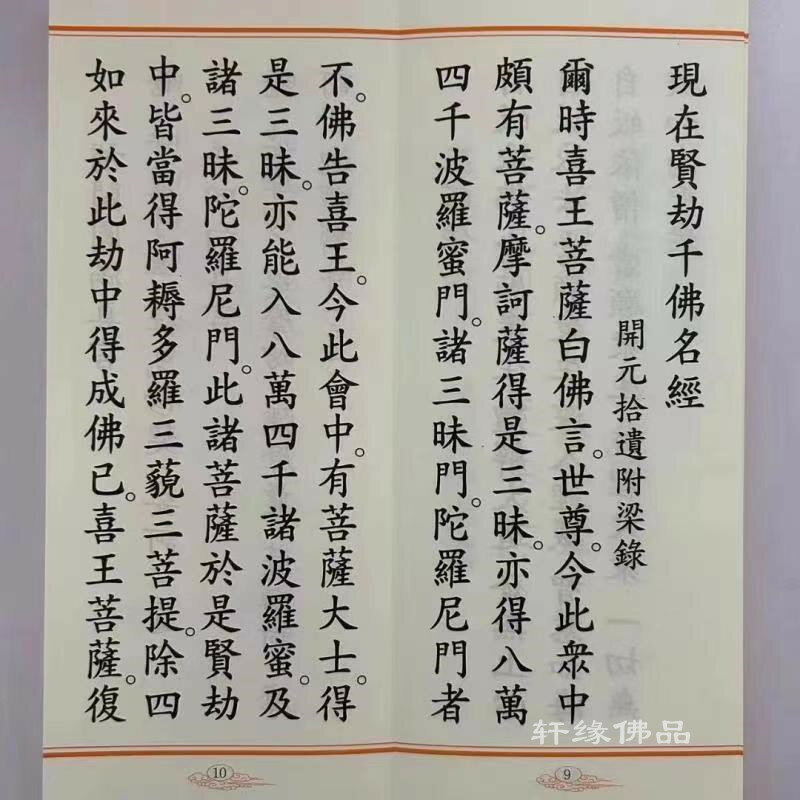 現在賢劫千佛名經
開元拾遺附梁錄
爾時喜王菩薩白佛言。世尊。今此眾中
頗有菩薩。摩訶薩得是三昧。亦得八萬
四千波羅蜜門。諸三昧門。陀羅尼門者
不。佛告喜王。今此會中。有菩薩大士。得
是三昧。亦能入八萬四千諸波羅蜜。及
諸三昧。陀羅尼門。此諸菩薩於是賢劫
中。皆當得阿耨多羅三藐三菩提。除四
如來於此劫中得成佛已。喜王菩薩。復
轩缘佛品
9
10